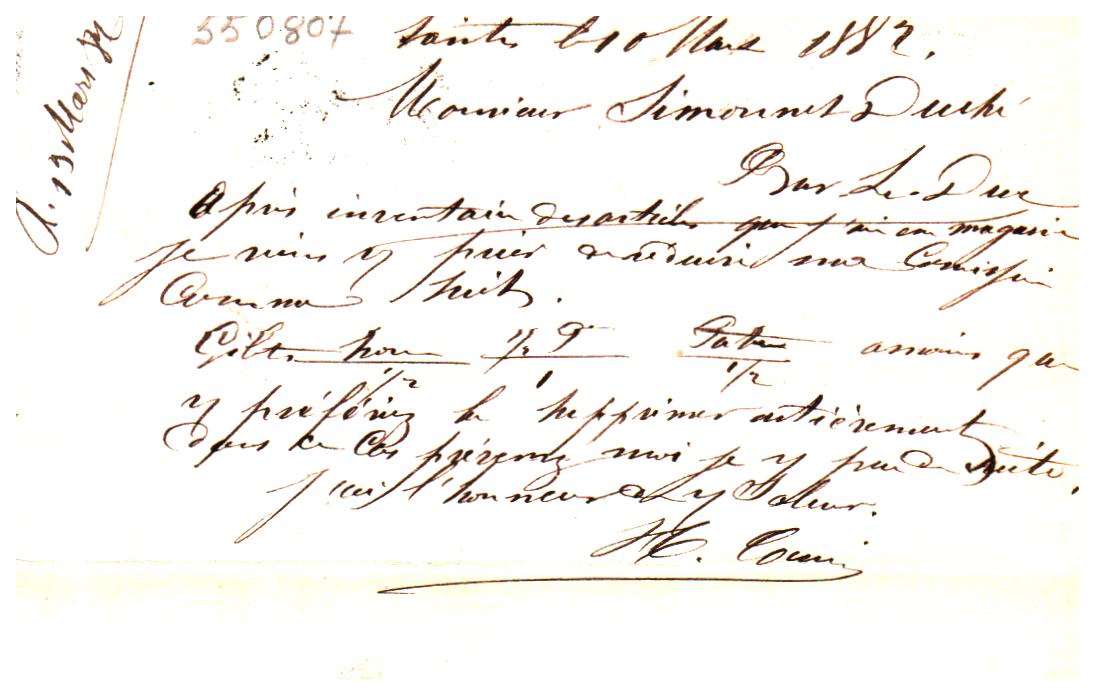 550807
R. 13 Mars 82
Saintes le 10 Mars 1882.
Monsieur Simonnet Duché
Bar-Le-Duc
Après inventaire des articles que j'ai en magasin
je viens v prier de réduire ma Comission
Comme suit.
Gilets hom 1/2 P
1/2 1 1/2 amoins que
v préfériez la supprimer entièrement
dans ce Cas prévenez moi je v prie de suite.
J'ai l'honneur de v Saluer.
H.